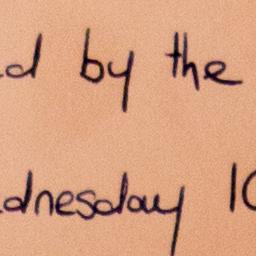 d by the
dnesday 10